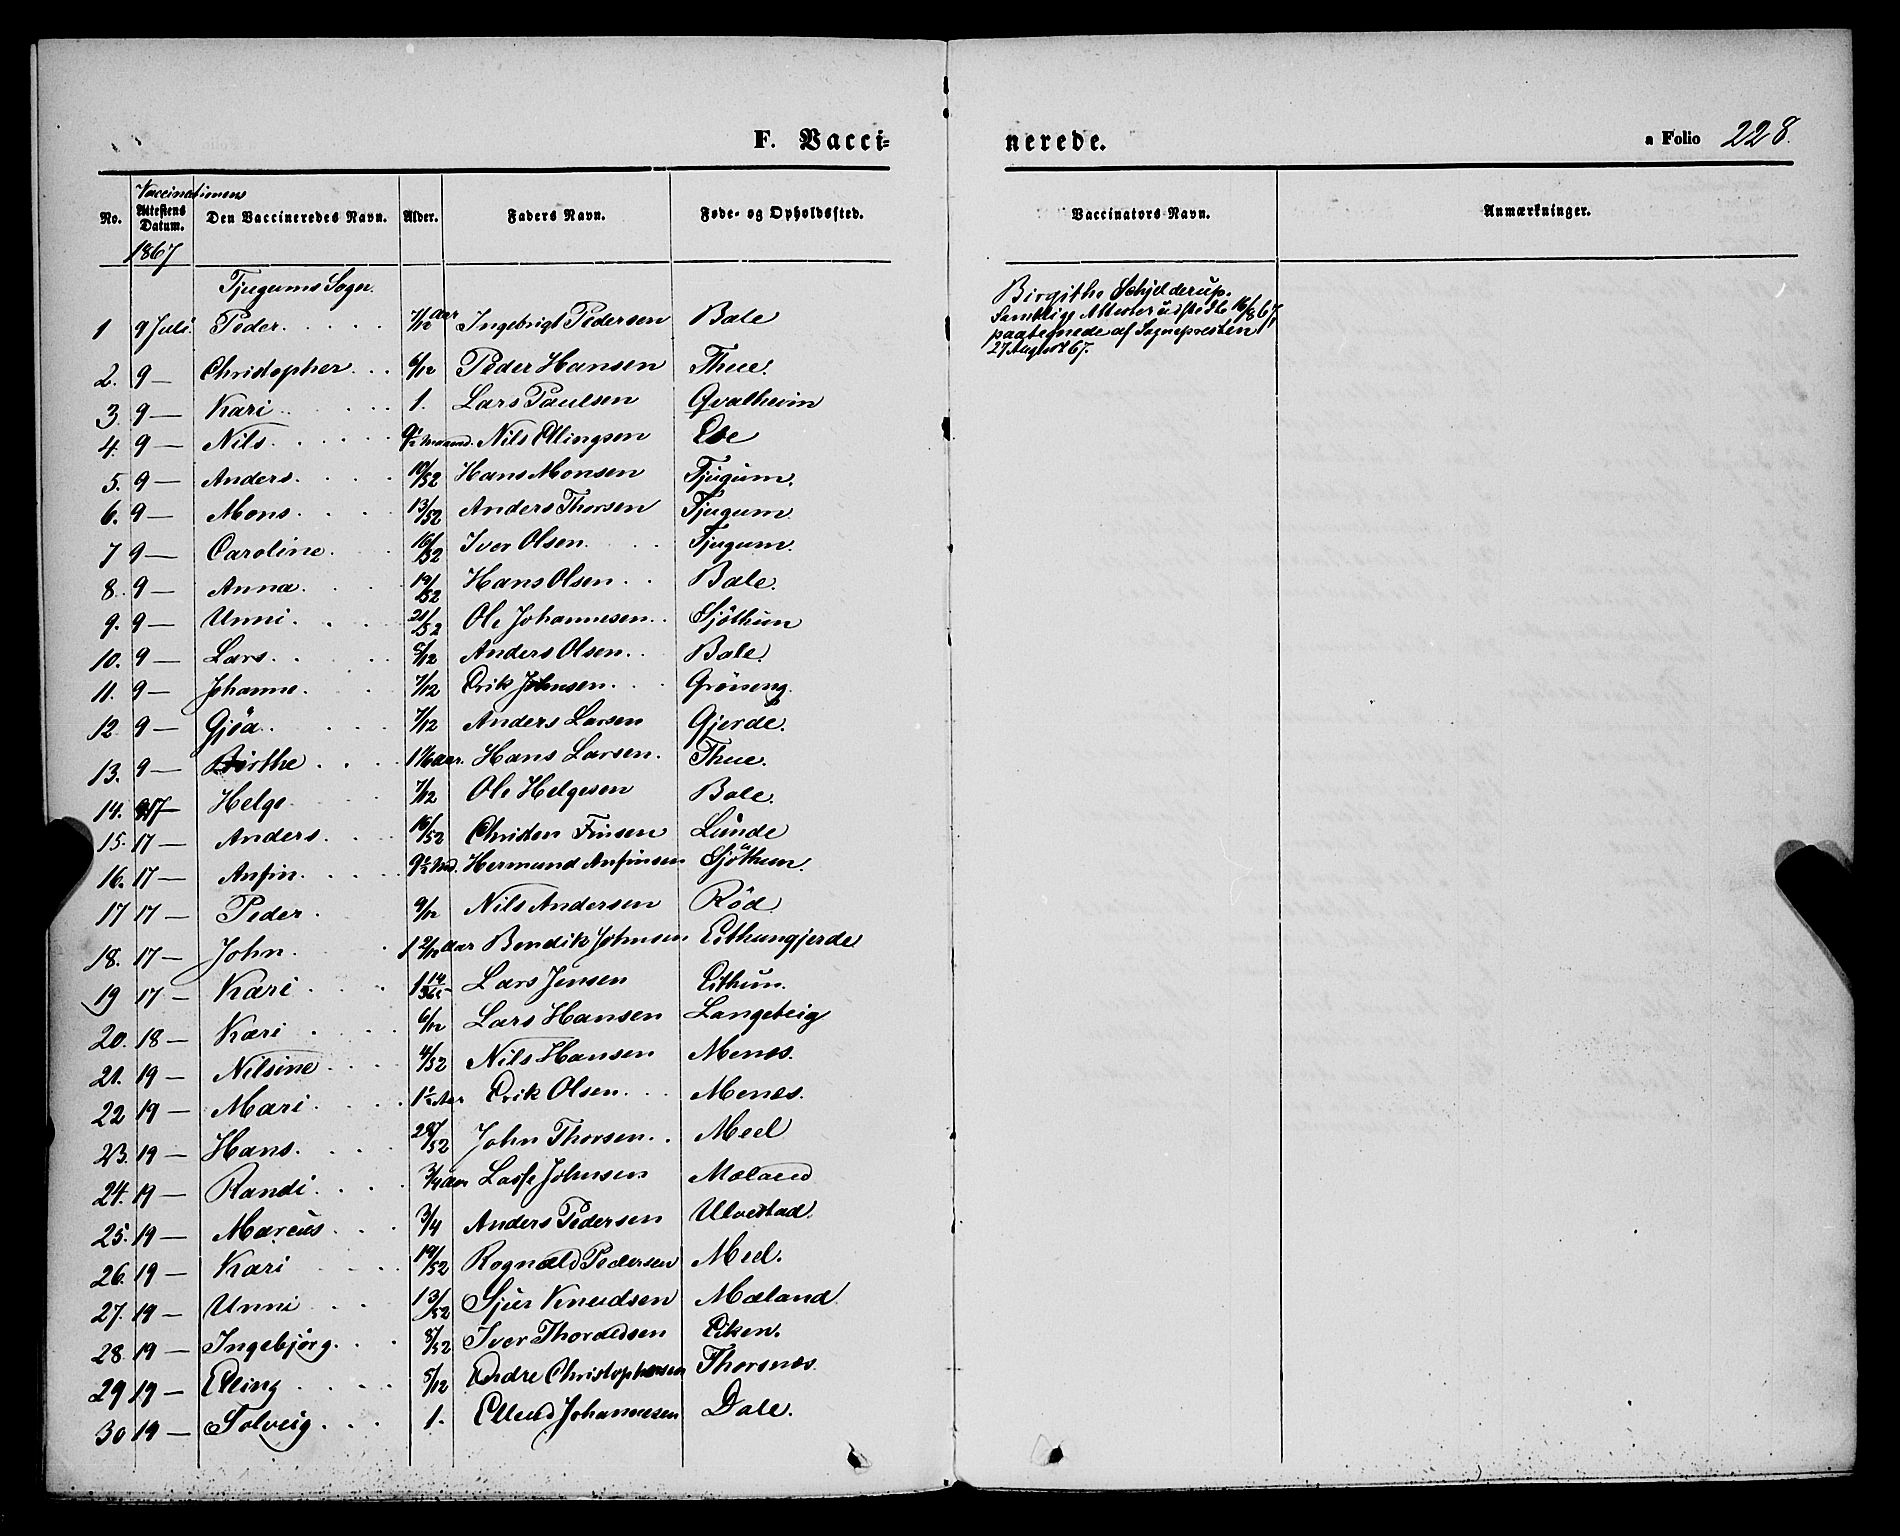 F. Vacci-
nerede.
a Folio 228.
No. Vaccinationens Attestens Datum. Den Vaccineredes Navn. Alder. Faders Navn. Føde- og Opholdssted. Vaccinators Navn. Anmærkninger.
1867
Tjugums Sogn.
Birgithe Schjelderup.
Samtlige Attester udstedte 16/8 67,
paategnede af Sognepresten
27 August 67.
1 9 Juli Peder. 7/12 aar Ingebrigt Pedersen Bale
2. 9 — Christopher 6/12 Peder Hansen Thue.
3. 9 — Kari 1. Lars Paulsen Qvalheim
4. 9 — Nils. 9 1/2 maaned. Nils Ellingsen Ese
5. 9 — Anders. 10/52 Hans Monsen Tjugum.
6. 9 — Mons. 13/52 Anders Thorsen Tjugum
7 9 — Caroline. 16/52 Iver Olsen Tjugum.
8. 9 — Anna. 19/52 Hans Olsen Bale.
9. 9 — Unni. 21/52 Ole Johannesen Sjöthun
10. 9 — Lars. 5/12 Anders Olsen Bale.
11. 9 — Johanne. 7/12 Erik Johnsen Gröneng.
12. 9 — Gjöa. 7/12 Anders Larsen Gjerde.
13. 9 — Birthe 1 1/6 aar. Hans Larsen. Thue.
14. 17 — Helge 7/12 Ole Helgesen Bale.
15. 17 — Anders. 16/52 Christen Finsen Lunde
16. 17 — Anfin. 9 1/2 Md. Hermund Anfinsen Sjöthun.
17 17 — Peder. 9/12 Nils Andersen Röd
18. 17 — John. 1 2/12 Aar Bendik Johnsen Eithungjerde
19 17 — Kari 1 14/365 Lars Jensen Eithun.
20. 18 — Kari 6/12 Lars Hansen Langeteig
21. 19 — Nilsine 4/52 Nils Hansen Menes.
22 19 — Mari. 1 1/2 Aar Erik Olsen Menes.
23. 19 — Hans. 28/52 John Thorsen Meel
24. 19 — Randi. 3/4 aar Lasse Johnsen Mæland
25. 19 — Marcus 3/4 Anders Pedersen Ulvestad.
26. 19 — Kari 19/52 Rognald Pedersen Meel.
27. 19 — Unni 13/52 Sjur Knudsen Mæland
28. 19 — Ingebjørg. 8/52 Iver Thordesen Eiken.
29 19 — Elling 5/12 Endre Christophersen Thorsnes
30 19 — Solveig 1. Ellend Johannesen Dale.